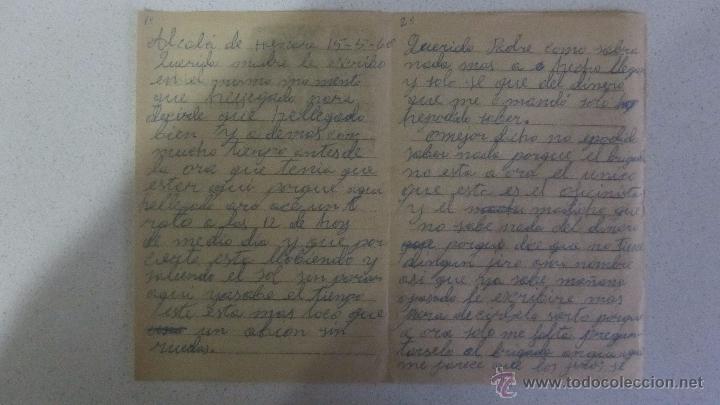 1º
Alcalá de Henare 15-5-68
Querida madre le escribo
en el mismo momento
que he llegado para
decirle que he llegado
bien y ademas con
mucho tiempo antes de
la ora que tenia que
estar aqui porque aqui
he llegado ara ace un
rato a las 12 de hoy
de medio dia y que por
cierto esta llobiendo y
saliendo el sol sin parar
aqui ya sabe el tiempo
este esta mas loco que
un abion sin
ruedas.
2º
Querido Padre como sabra
nada mas a llegar
y solo se que del dinero
que me mandó solo
he podido saber.
o mejor dicho no e podido
saber nada porque el brigada
no esta a ora el unico
que esta es el oficinista
y el maestro que
no sabe nada del dinero
porque dice que no tiene
ningun jiro a mi nombre
asi que ya sabe mañana
o pasado le escribire mas
para decirselo sierto porque
a ora solo me falta pregun
tarselo al brigada
me parece que los jiros se
todocoleccion
www.todocoleccion.net